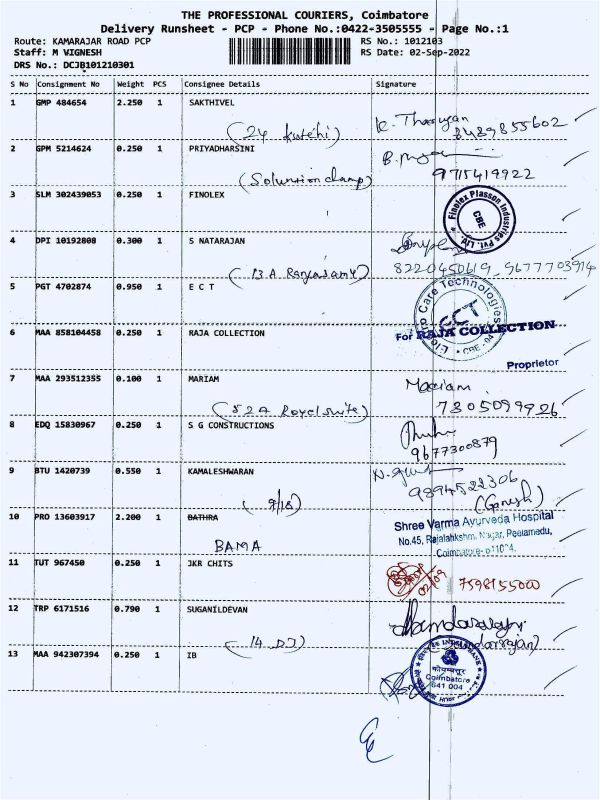 THE PROFESSIONAL COURIERS, Coimbatore
Delivery Runsheet - PCP - Phone No.:0422-3505555 - Page No.:1
Route: KAMARAJAR ROAD PCP RS No.: 1012103
Staff: M VIGNESH RS Date: 02-Sep-2022
DRS No.: DCJB101210301
S No Consignment No Weight PCS Consignee Details Signature
1 GMP 484654 2.250 1 SAKTHIVEL
8489855602
2 GPM 5214624 0.250 1 PRIYADHARSINI
9715419922
3 SLM 302439053 0.250 1 FINOLEX
Finolex Plasson Industries Pvt. Ltd. CBE
4 DPI 10192808 0.300 1 S NATARAJAN
8220450619, 9677703914
5 PGT 4702874 0.950 1 E C T
Care Technologies
CBE - 04
6 MAA 858104458 0.250 1 RAJA COLLECTION
For RAJA COLLECTION
Proprietor
7 MAA 293512355 0.100 1 MARIAM
Mariam
7305099926
8 EDQ 15830967 0.250 1 S G CONSTRUCTIONS
9677300879
9 BTU 1420739 0.550 1 KAMALESHWARAN
9894522306
(Ganesh)
10 PRO 13603917 2.200 1 BATHRA
BAMA
Shree Varma Ayurveda Hospital
No.45, Rajalahkshmi Nagar, Peelamedu,
11 TUT 967450 0.250 1 JKR CHITS
02/09 7598155000
12 TRP 6171516 0.790 1 SUGANILDEVAN
13 MAA 942307394 0.250 1 IB
INDIAN BANK
कोयम्बत्तूर
Coimbatore
641 004